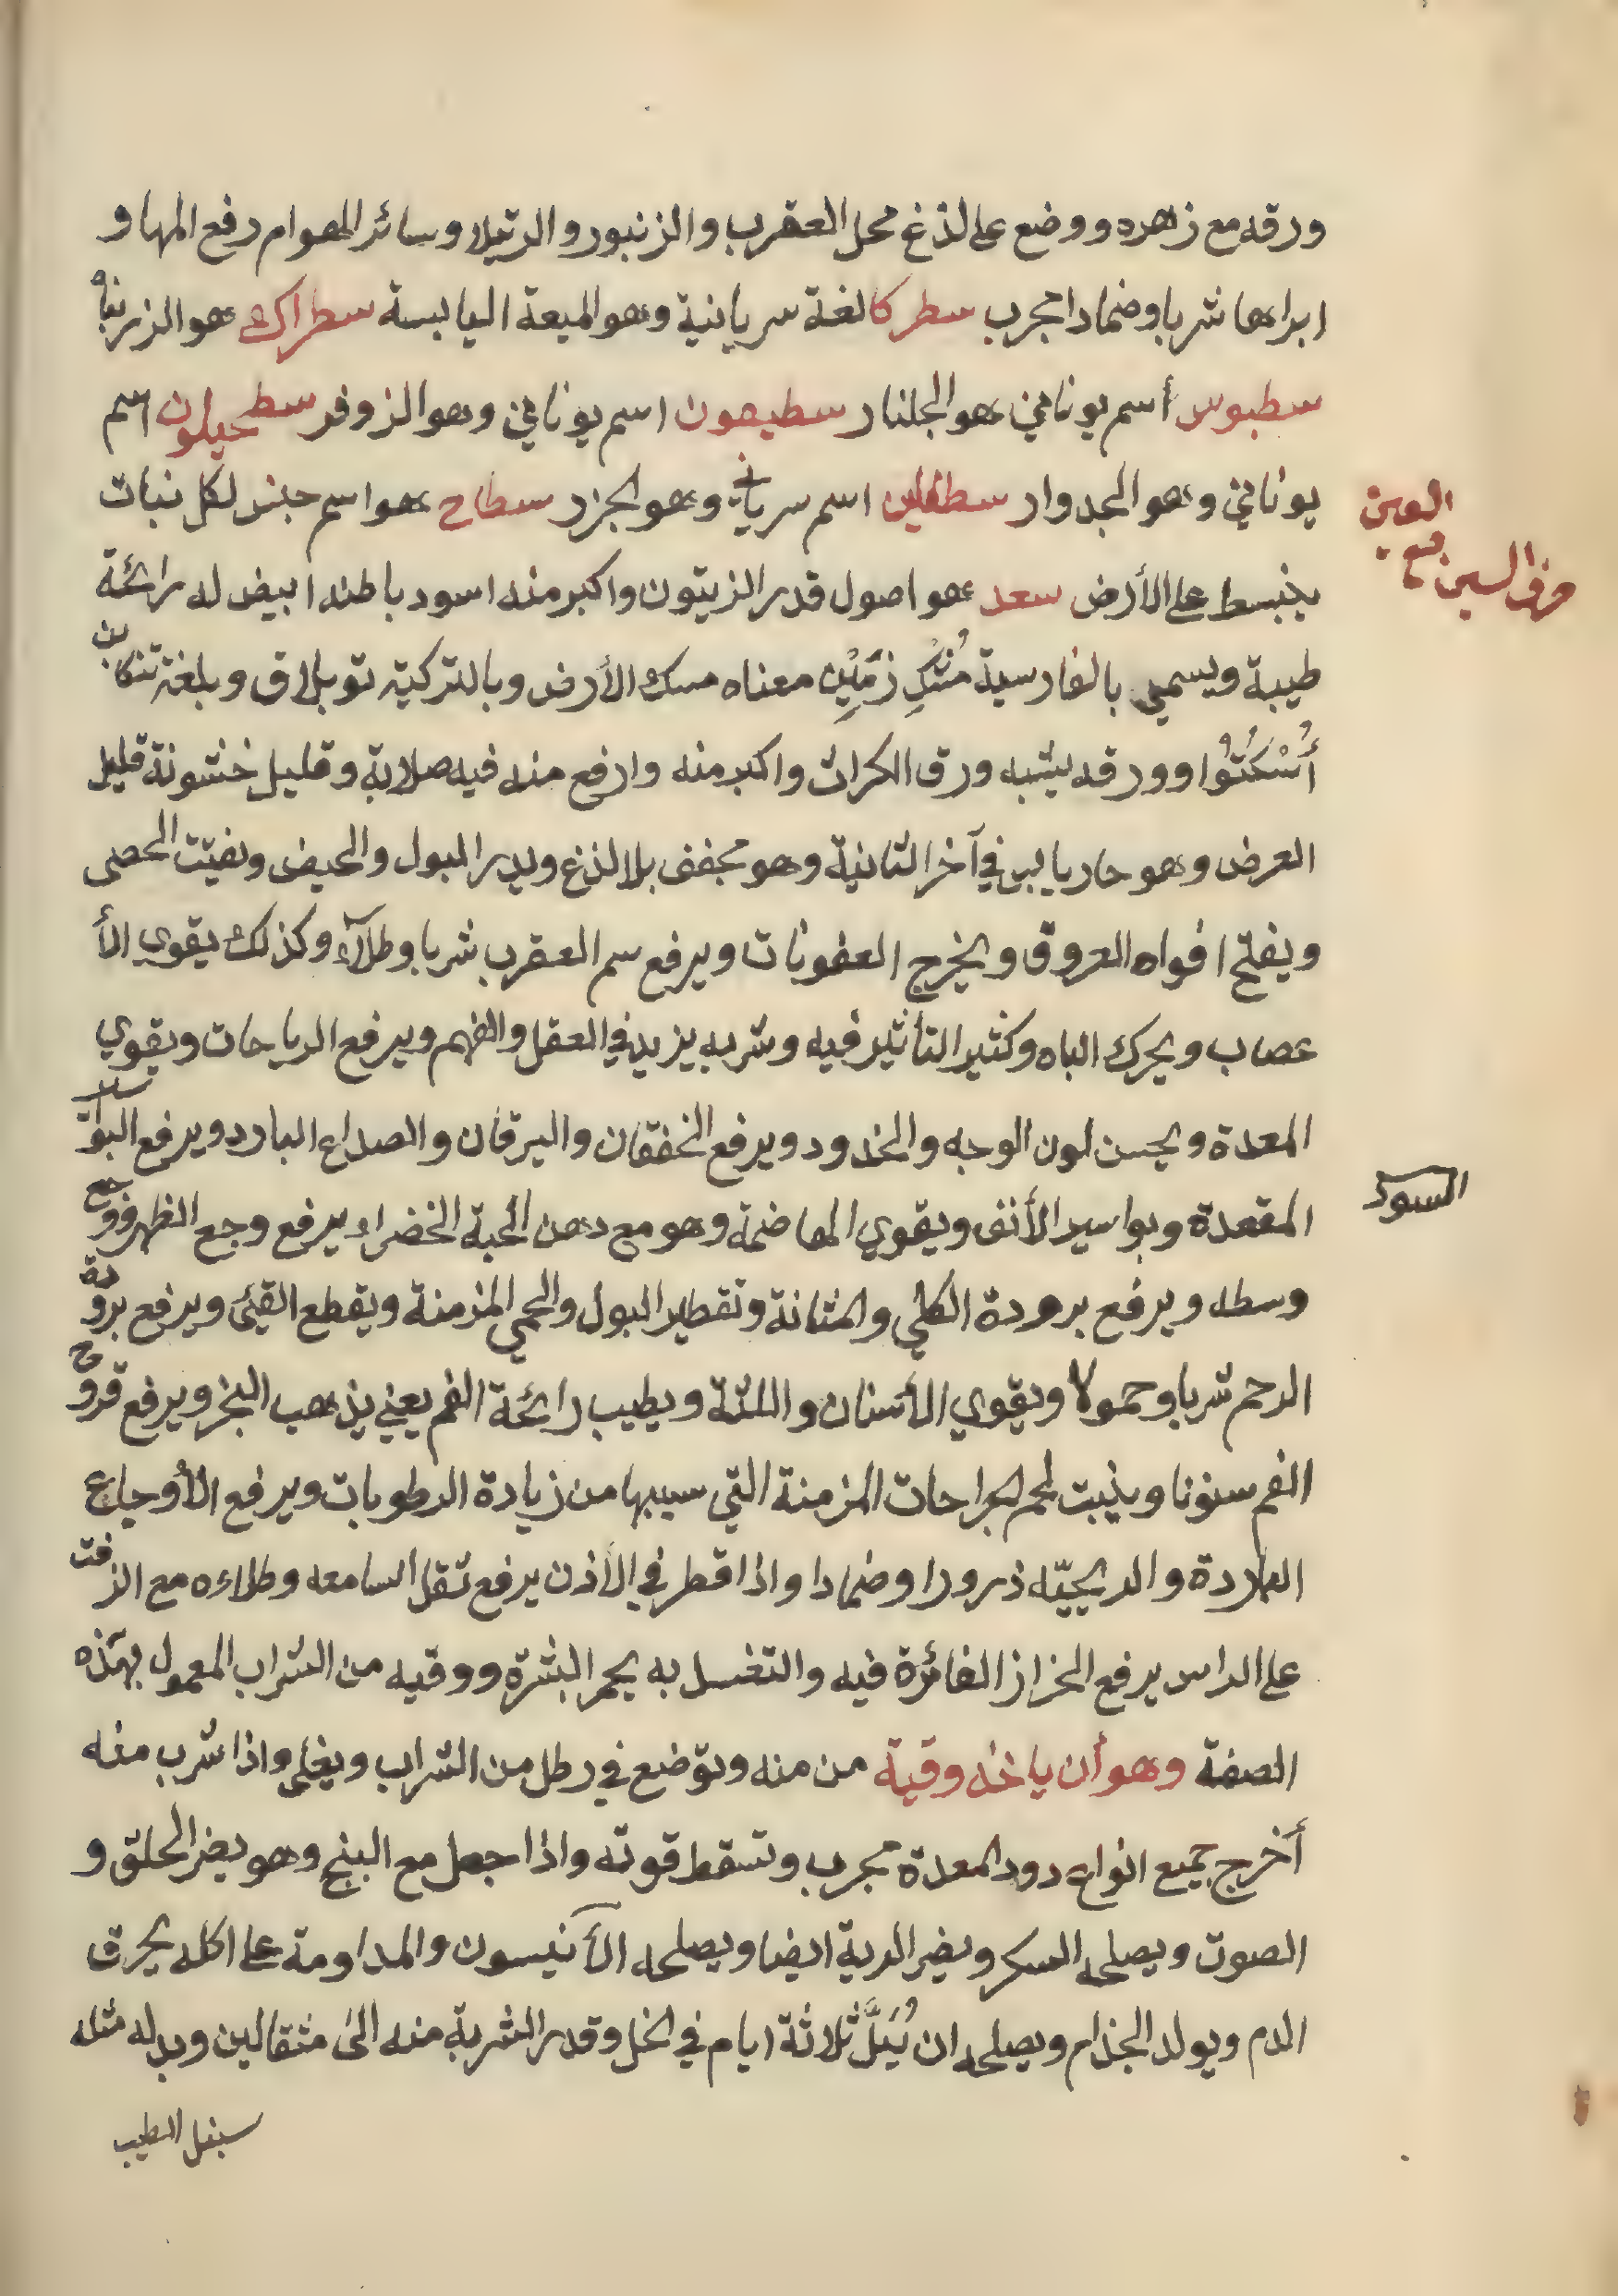 ورقه مع زهره ووضع على لذغ محل العقرب والزنبور والرتيلا وسائر الهوام رفع المها و
ابراءها شربا وضمادا مجرب سطركا لغة سريانية وهو الميعة اليابسة سطراك هو الزرنباد
سطبوس أسم يوناني هو الجلنار سطيهون اسم يوناني وهو الزوفر سطحيلون اسم
يوناني وهو الجدوار سطفلين اسم سرياني وهو الجزر سطاح هو اسم جنس لكل نبات
العين
حرف السين مع
ينبسط على الأرض سعد هو اصول قدر الزيتون واكبر منه اسود باطنه ابيض له رائحة
طيبة ويسمى بالفارسية مُشْكِ زَمِيْن معناه مسك الأرض وبالتركية توبلاق وبلغة تنكابن
أُسْكُتُوا وورقه يشبه ورق الكراث واكبر منه وارفع منه فيه صلابة وقليل خشونة قليل
العرض وهو حار يابس في آخر الثانية وهو مجفف بلا لذغ ويدر البول والحيض ويفتت الحصى
ويفتح افواه العروق ويخرج العفونات ويرفع سم العقرب شربا وطلآء وكذلك يقوي الأ
عصاب ويحرك الباه وكثير التأثير فيه وشربه يزيد في العقل والفهم ويرفع الرياحات ويقوي
المعدة ويحسن لون الوجه والخدود ويرفع الخفقان واليرقان والصداع البارد ويرفع البواسير
السود
المقعدة وبواسير الأنف ويقوي الهاضمة وهو مع دهن الحبة الخضراء يرفع وجع الظهر ووجع
وسطه ويرفع برودة الكلي والمثانة وتقطير البول والحمي المزمنة ويقطع القيئ ويرفع برودة
الرحم شربا وحمولا ويقوي الأسنان واللثة ويطيب رائحة الفم يعني يذهب البخر ويرفع قروح
الفم سنونا وينبت لحم الجراحات المزمنة التي سببها من زيادة الرطوبات ويرفع الأوجاع
الباردة والريحيّه ذرورا وضمادا واذا قطر في الأذن يرفع ثقل السامعه وطلاءه مع الزفت
على الراس يرفع الخزاز الفائزة فيه والتغسل به يحمر البشرة ووقيه من الشراب المعمول بهذه
الصفة وهو أن ياخذ وقية من منه وتوضع في رطل من الشراب ويغلى واذا شرب منه
أخرج جميع انواع دود المعدة مجرب وتسقط قوته واذا جعل مع البنج وهو يضر الحلق و
الصوت ويصلحه السكر ويضر الرية ايضا ويصلحه الآنيسون والمداومة على اكله يحرق
الدم ويولد الجذام ويصلحه ان يُبَلَّ ثلاثة ايام في الخل وقدر الشربة منه الى مثقالين وبدله مثله
سنبل الطيب